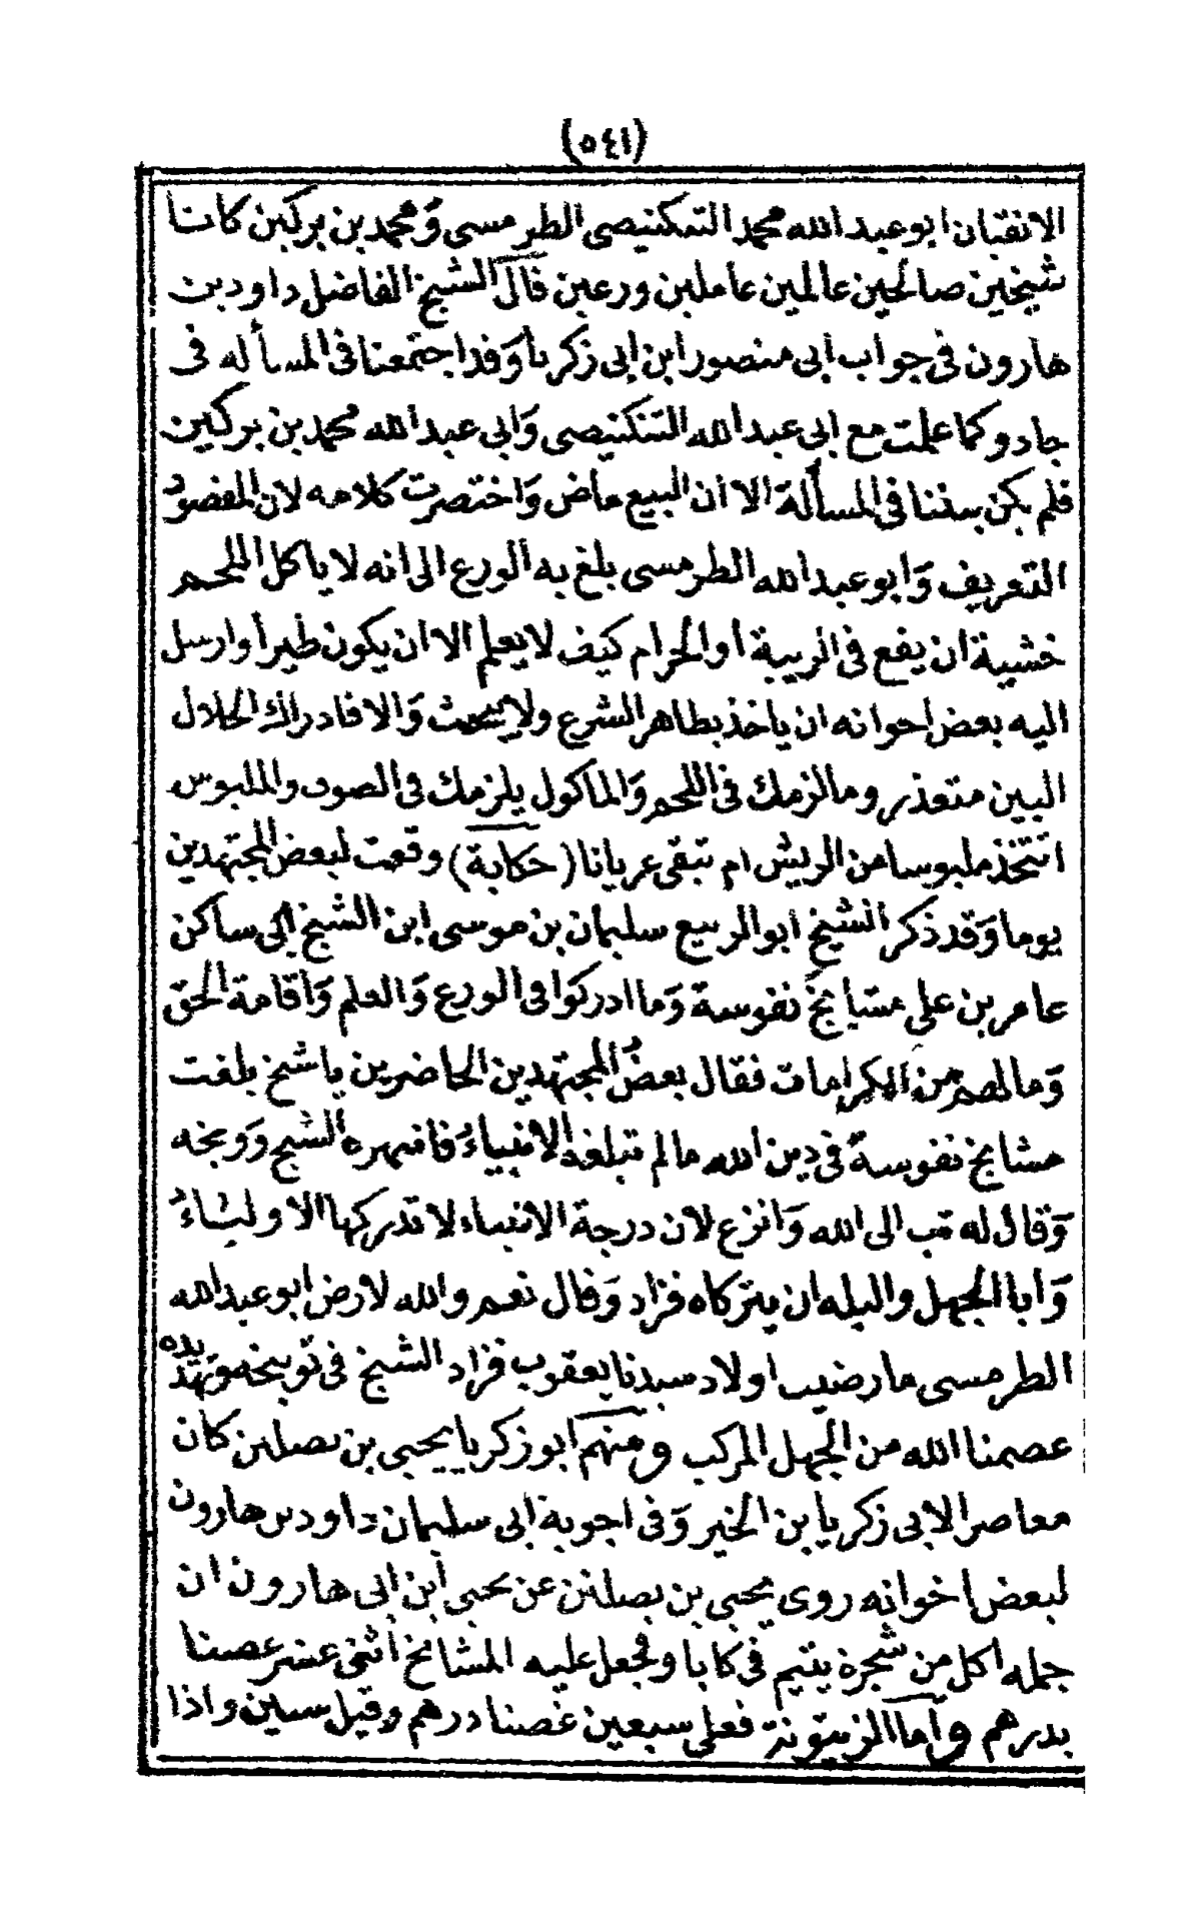 (٥٤١)
الاتقيان ابو عبد الله محمد التمكنيصى الطرمسى وَمحمد بن بركين كانا
شيخين صالحين عالمين عاملين ورعين قال الشيخ الفاضل داود بن
هارون فى جواب ابى منصور ابن ابى زكريا وَقد اجتمعنا فى المسأله فى
جادو كما علمت مع ابى عبد الله التنكنيصى وَابى عبد الله محمد بن بركين
فلم يكن بيننا فى المسألة الا ان البيع ماض وَاختصرت كلامه لان المقصود
التعريف وَابو عبد الله الطرمسى بلغ به الورع الى انه لا ياكل اللحم
خشية ان يقع فى الريبة او الحرام كيف لا يعلم الا ان يكون طيرا وارسل
اليه بعض اخوانه ان ياخذ بظاهر الشرع ولا يبحث وَالا فادراك الحلال
البين متعذر وما لزمك فى اللحم وَالماكول يلزمك فى الصوف والملبوس
اتتخذ ملبوسا من الريش ام تبقى عريانا (حكاية) وقعت لبعض المجتهدين
يوما وَقد ذكر الشيخ ابو الربيع سليمان بن موسى ابن الشيخ ابى ساكن
عامر بن على مشايخ نفوسة وَما ادركوا فى الورع وَالعلم وَاقامة الحق
وَما لهم من الكرامات فقال بعضُ المجتهدين الحاضرين ياشيخ بلغت
مشايخ نفوسة فى دين الله ما لم تبلغه الانبياءُ فانتهره الشيخ وَوبخه
وَقال له تب الى الله وَانزع لان درجة الانبياء لا تدركها الاولياءُ
وَابا الجهل والبله ان يتركاه فزاد وَقال نعم والله لارض ابو عبد الله
الطرمسى ما رضيت اولاد سيدنا يعقوب فزاد الشيخ فى توبيخه وتهديده
عصمنا الله من الجهل المركب ومنهم ابو زكريا يحيى بن يصلتن كان
معاصر الابى زكريا بن الخير وَفى اجوبة ابى سليمان داود بن هارون
لبعض اخوانه روى يحيى بن يصلتن عن يحيى ابن ابى هارون ان
جمله اكل من شجرة يتيم فى كابا وفجعل عليه المشايخ اثنى عشر غصنا
بدرهم واما الزيتونة فعلى سبعين غصنا درهم وقيل ستين واذا